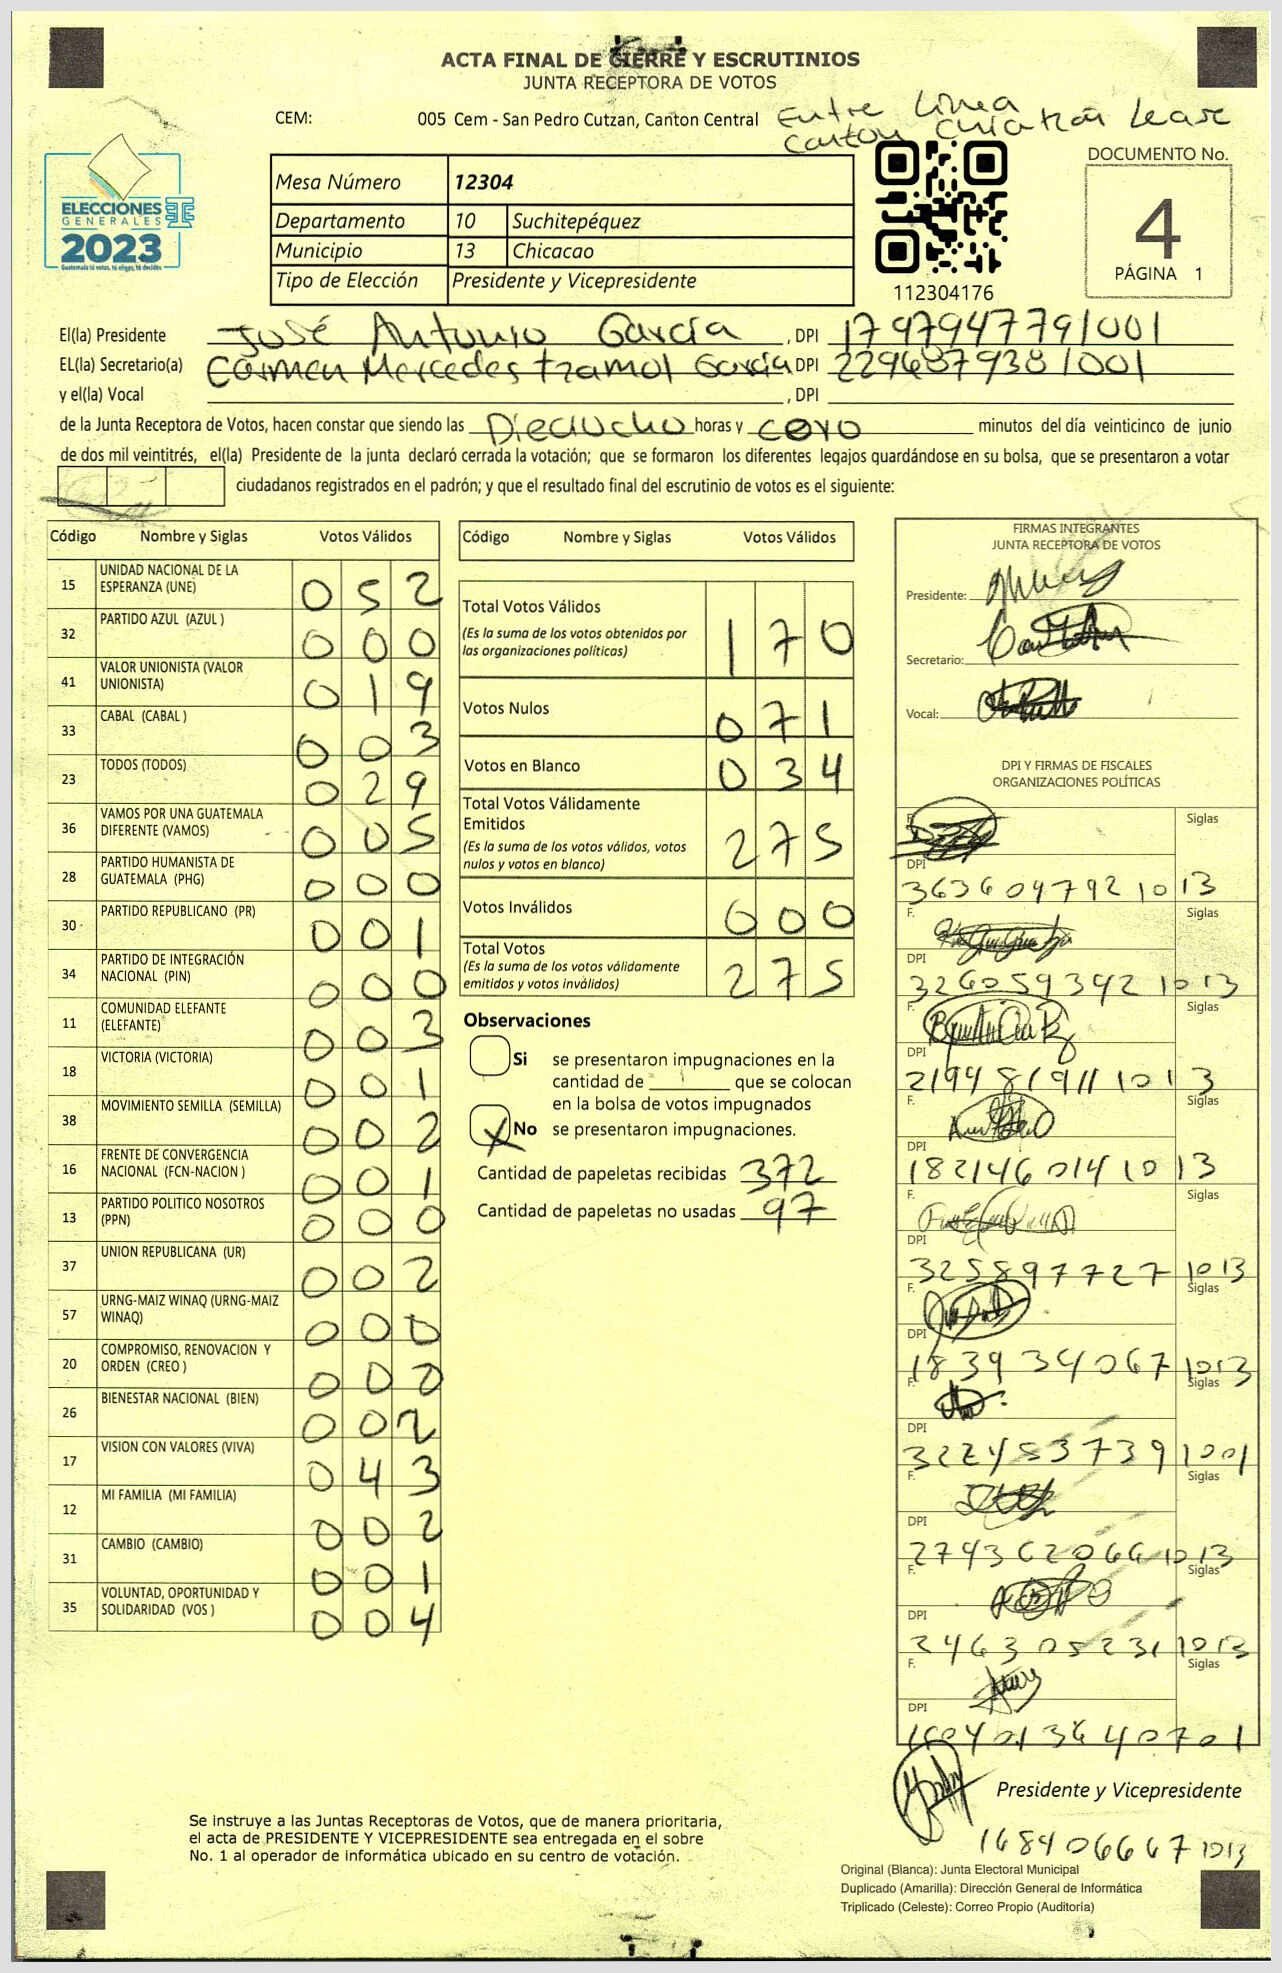 ACTA FINAL DE CIERRE Y ESCRUTINIOS
JUNTA RECEPTORA DE VOTOS
CEM: 005 Cem - San Pedro Cutzan, Canton Central
Entre Linea
Canton Chiatzán Lease
ELECCIONES
GENERALES
2023
Guatemala tú votas, tú eliges, tú decides
Mesa Número 12304
Departamento 10 Suchitepéquez
Municipio 13 Chicacao
Tipo de Elección Presidente y Vicepresidente
112304176
DOCUMENTO No.
4
PÁGINA 1
El(la) Presidente José Antonio García, DPI 1797947791001
EL(la) Secretario(a) Carmen Mercedes Tzamol García DPI 2296879381001
y el(la) Vocal , DPI
de la Junta Receptora de Votos, hacen constar que siendo las Dieciocho horas y cero minutos del día veinticinco de junio
de dos mil veintitrés, el(la) Presidente de la junta declaró cerrada la votación; que se formaron los diferentes legajos guardándose en su bolsa, que se presentaron a votar
ciudadanos registrados en el padrón; y que el resultado final del escrutinio de votos es el siguiente:
Código Nombre y Siglas Votos Válidos
15 UNIDAD NACIONAL DE LA
ESPERANZA (UNE) 052
32 PARTIDO AZUL (AZUL ) 000
41 VALOR UNIONISTA (VALOR
UNIONISTA) 019
33 CABAL (CABAL ) 003
23 TODOS (TODOS) 029
36 VAMOS POR UNA GUATEMALA
DIFERENTE (VAMOS) 005
28 PARTIDO HUMANISTA DE
GUATEMALA (PHG) 000
30 PARTIDO REPUBLICANO (PR) 001
34 PARTIDO DE INTEGRACIÓN
NACIONAL (PIN) 000
11 COMUNIDAD ELEFANTE
(ELEFANTE) 003
18 VICTORIA (VICTORIA) 001
38 MOVIMIENTO SEMILLA (SEMILLA) 002
16 FRENTE DE CONVERGENCIA
NACIONAL (FCN-NACION ) 001
13 PARTIDO POLITICO NOSOTROS
(PPN) 000
37 UNION REPUBLICANA (UR) 002
57 URNG-MAIZ WINAQ (URNG-MAIZ
WINAQ) 000
20 COMPROMISO, RENOVACION Y
ORDEN (CREO ) 000
26 BIENESTAR NACIONAL (BIEN) 002
17 VISION CON VALORES (VIVA) 043
12 MI FAMILIA (MI FAMILIA) 002
31 CAMBIO (CAMBIO) 001
35 VOLUNTAD, OPORTUNIDAD Y
SOLIDARIDAD (VOS ) 004
Código Nombre y Siglas Votos Válidos
Total Votos Válidos 170
(Es la suma de los votos obtenidos por
las organizaciones políticas)
Votos Nulos 071
Votos en Blanco 034
Total Votos Válidamente
Emitidos 275
(Es la suma de los votos válidos, votos
nulos y votos en blanco)
Votos Inválidos 000
Total Votos 275
(Es la suma de los votos válidamente
emitidos y votos inválidos)
Observaciones
Si se presentaron impugnaciones en la
cantidad de que se colocan
en la bolsa de votos impugnados
X No se presentaron impugnaciones.
Cantidad de papeletas recibidas 372
Cantidad de papeletas no usadas 97
FIRMAS INTEGRANTES
JUNTA RECEPTORA DE VOTOS
Presidente:
Secretario:
Vocal:
DPI Y FIRMAS DE FISCALES
ORGANIZACIONES POLÍTICAS
F. Siglas
DPI
3636047921013
F. Siglas
DPI
3260593421013
F. Siglas
DPI
2194819111013
F. Siglas
DPI
1821460141013
F. Siglas
DPI
3258977271013
F. Siglas
DPI
1839340671013
F. Siglas
DPI
3224537391001
F. Siglas
DPI
2743620661013
F. Siglas
DPI
2463052311013
F. Siglas
DPI
1604013640701
Presidente y Vicepresidente
1684066671013
Se instruye a las Juntas Receptoras de Votos, que de manera prioritaria,
el acta de PRESIDENTE Y VICEPRESIDENTE sea entregada en el sobre
No. 1 al operador de informática ubicado en su centro de votación.
Original (Blanca): Junta Electoral Municipal
Duplicado (Amarilla): Dirección General de Informática
Triplicado (Celeste): Correo Propio (Auditoría)